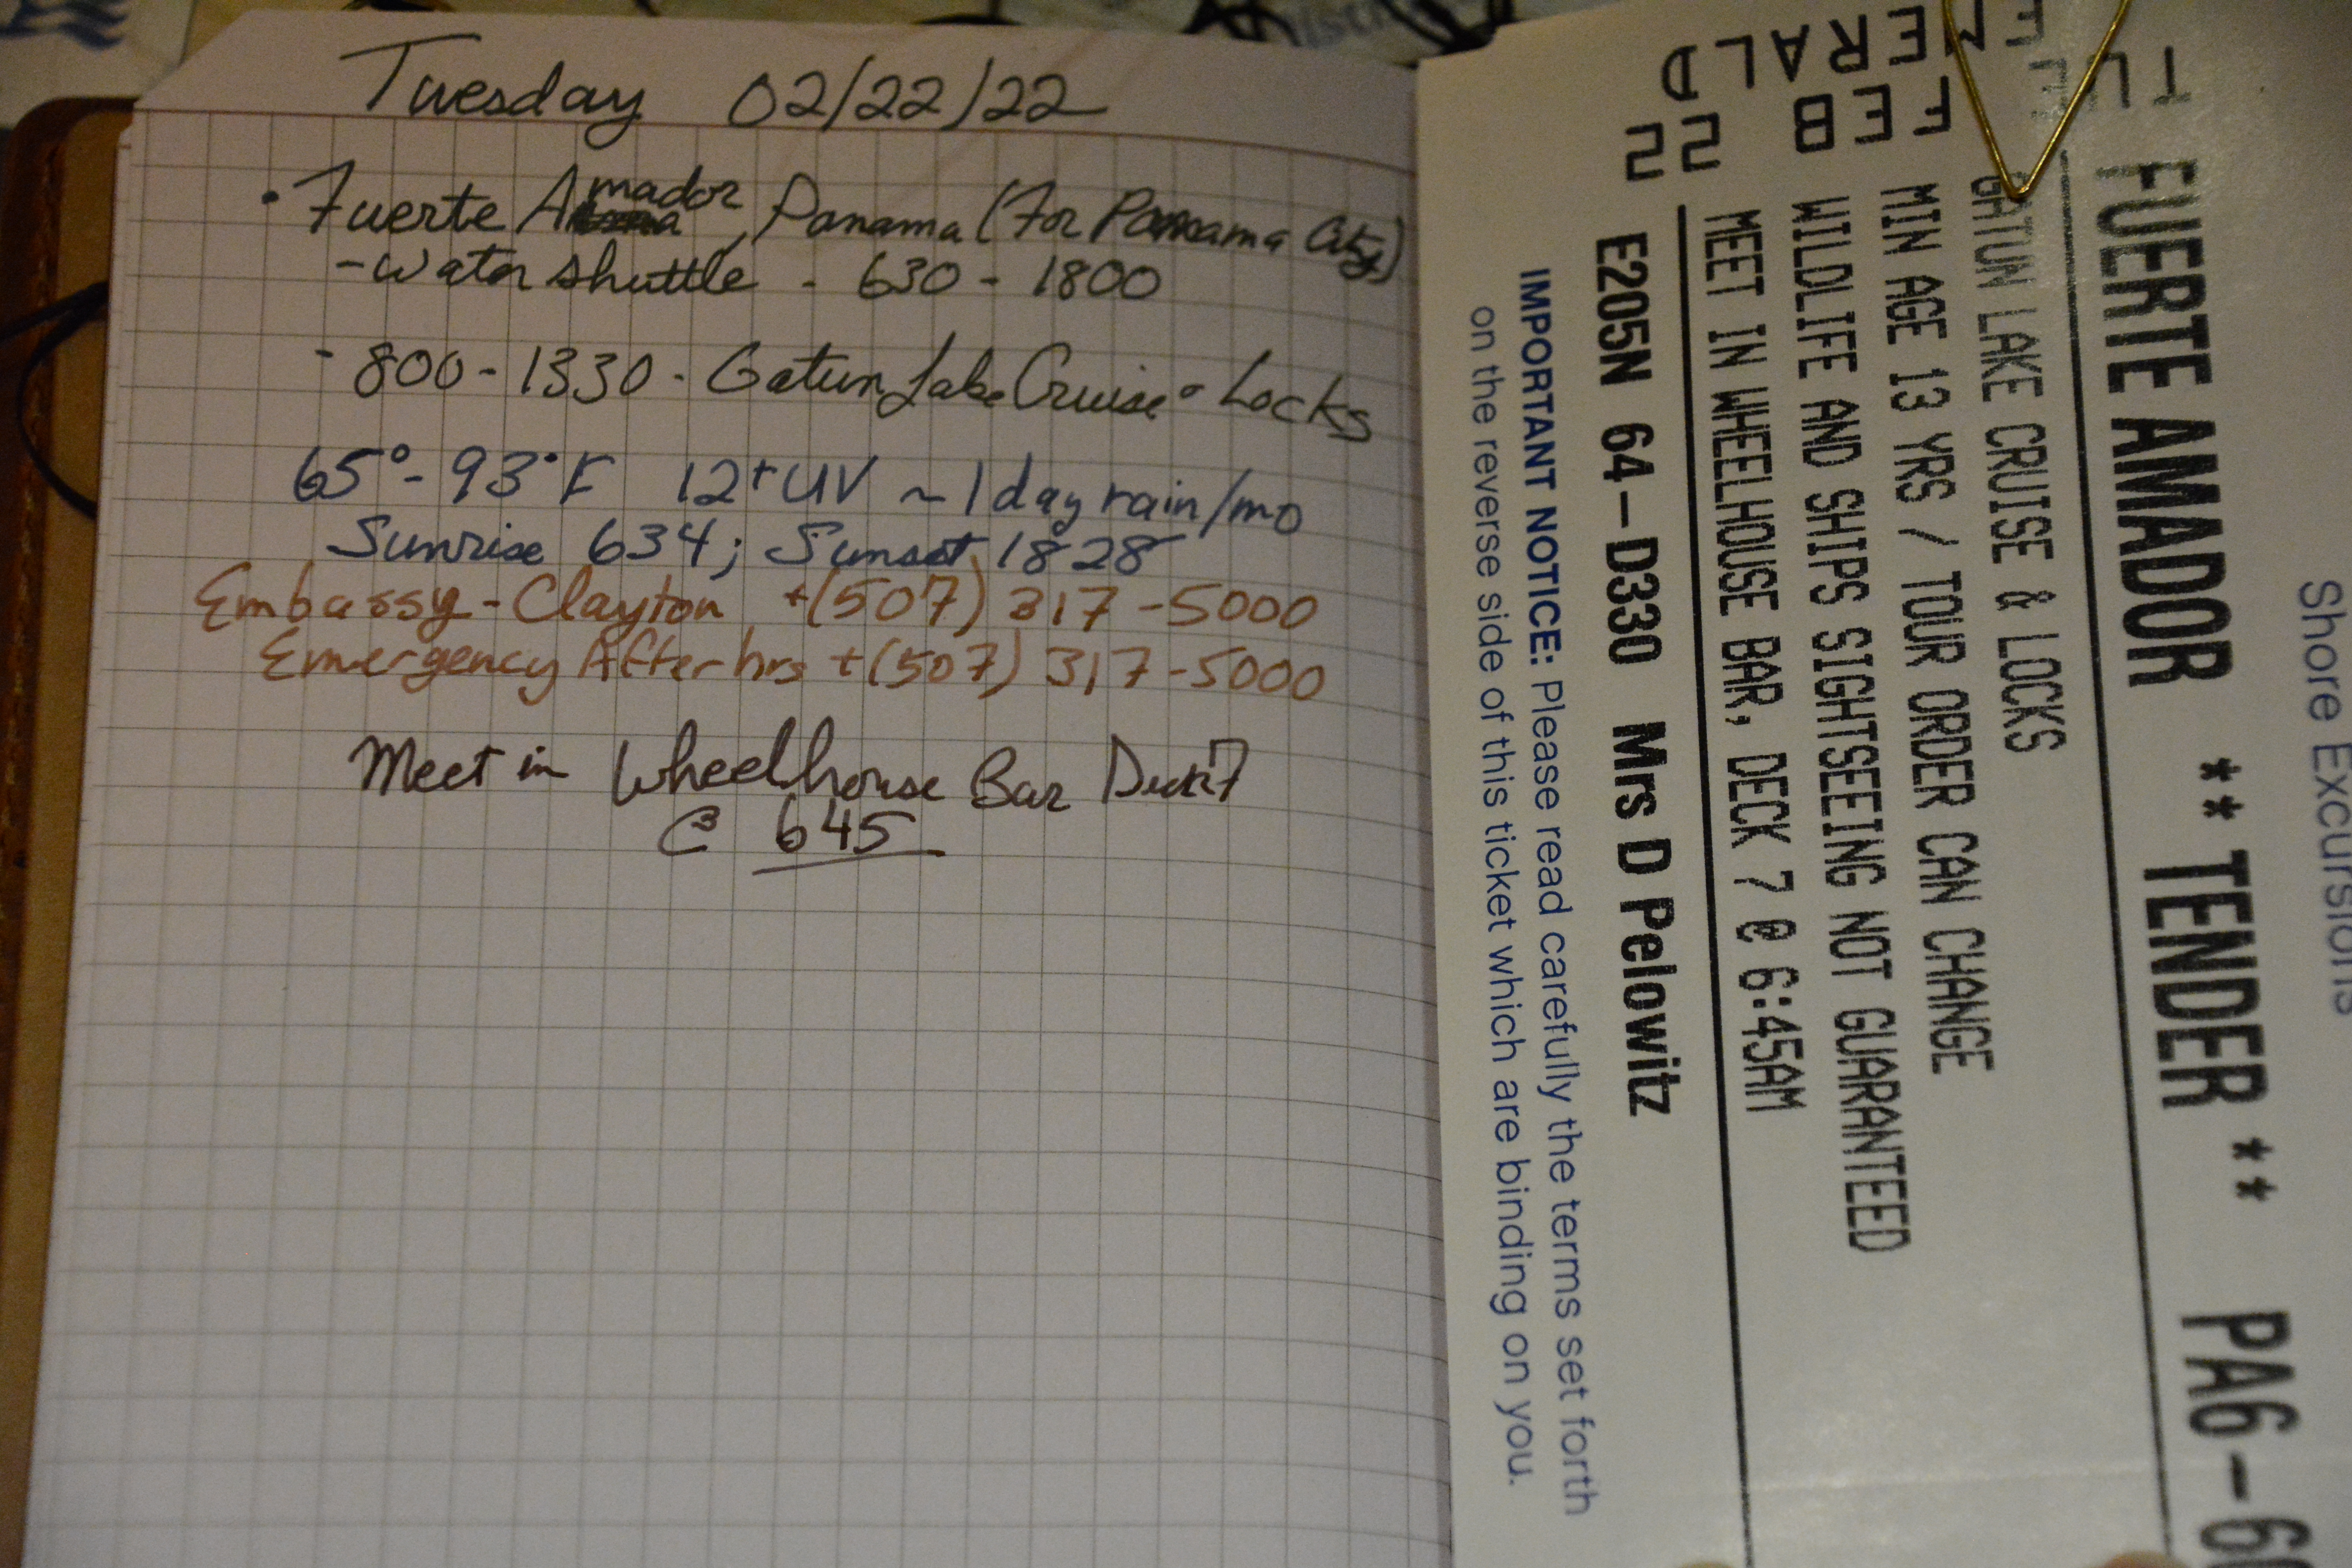 Tuesday 02/22/22
• Fuerte Amador, Panama (For Panama City)
- Water shuttle - 630 - 1800
- 800 - 1330 - Gatun Lake Cruise & Locks
65° - 93°F 12+ UV ~ 1 day rain/mo
Sunrise 634; Sunset 1828
Embassy - Clayton +(507) 317-5000
Emergency After hrs +(507) 317-5000
Meet in Wheelhouse Bar Deck 7
@ 645
Shore Excursions
FUERTE AMADOR ** TENDER ** PA6-6
GATUN LAKE CRUISE & LOCKS
MIN AGE 13 YRS / TOUR ORDER CAN CHANGE
WILDLIFE AND SHIPS SIGHTSEEING NOT GUARANTEED
MEET IN WHEELHOUSE BAR, DECK 7 @ 6:45AM
E205N 64-D330 Mrs D Pelowitz
IMPORTANT NOTICE: Please read carefully the terms set forth
on the reverse side of this ticket which are binding on you.
TUE
FEB
22